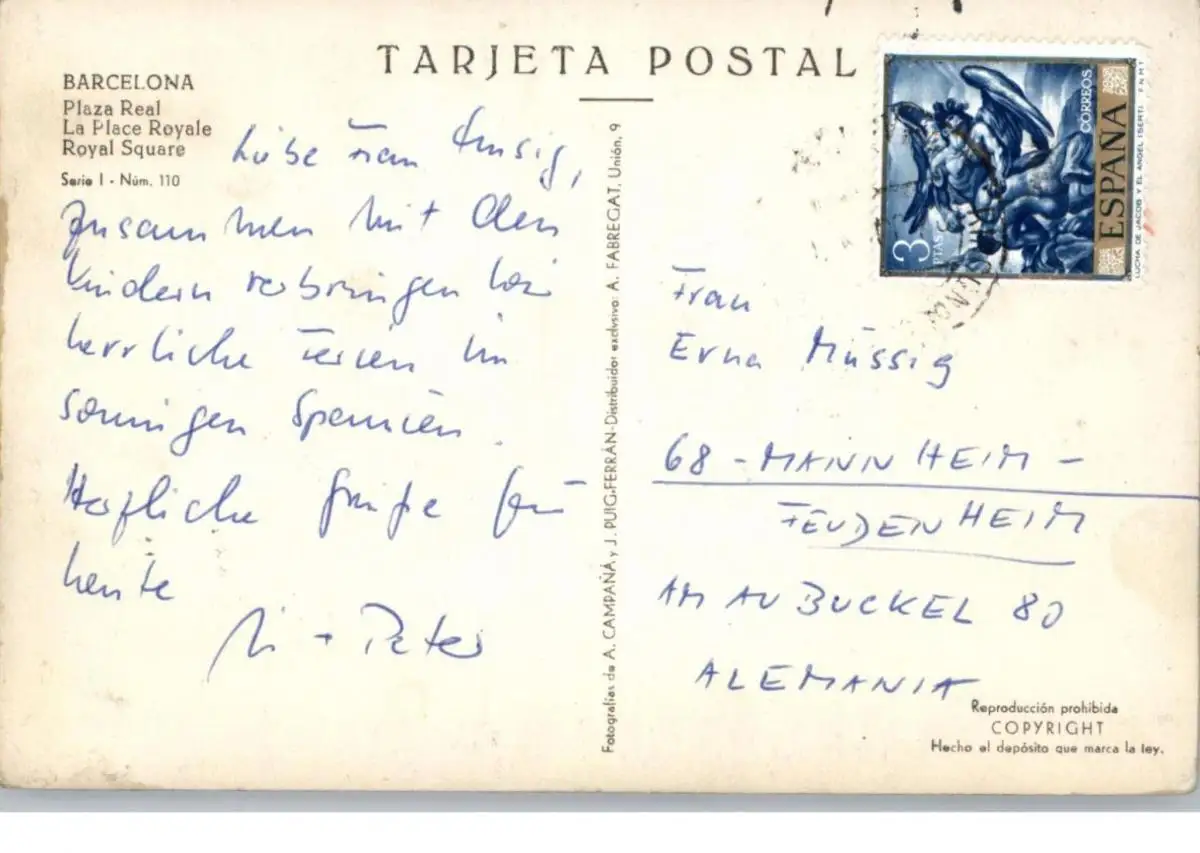 TARJETA POSTAL
BARCELONA
Plaza Real
La Place Royale
Royal Square
Serie I - Núm. 110
Liebe Frau Müssig,
zusammen mit den
Kindern verbringen wir
herrliche Ferien im
sonnigen Spanien.
Herzliche Grüße für
heute
+ Peter
Fotografías de A. CAMPAÑÁ y J. PUIG-FERRÁN-Distribuidor exclusivo: A. FABREGAT, Unión, 9
3 PTAS
CORREOS
ESPAÑA
LUCHA DE JACOB Y EL ANGEL (SERT) F.N.M.T
Frau
Erna Müssig
68 - MANNHEIM -
FEUDENHEIM
AM AUBUCKEL 80
ALEMANIA
Reproducción prohibida
COPYRIGHT
Hecho el depósito que marca la ley.